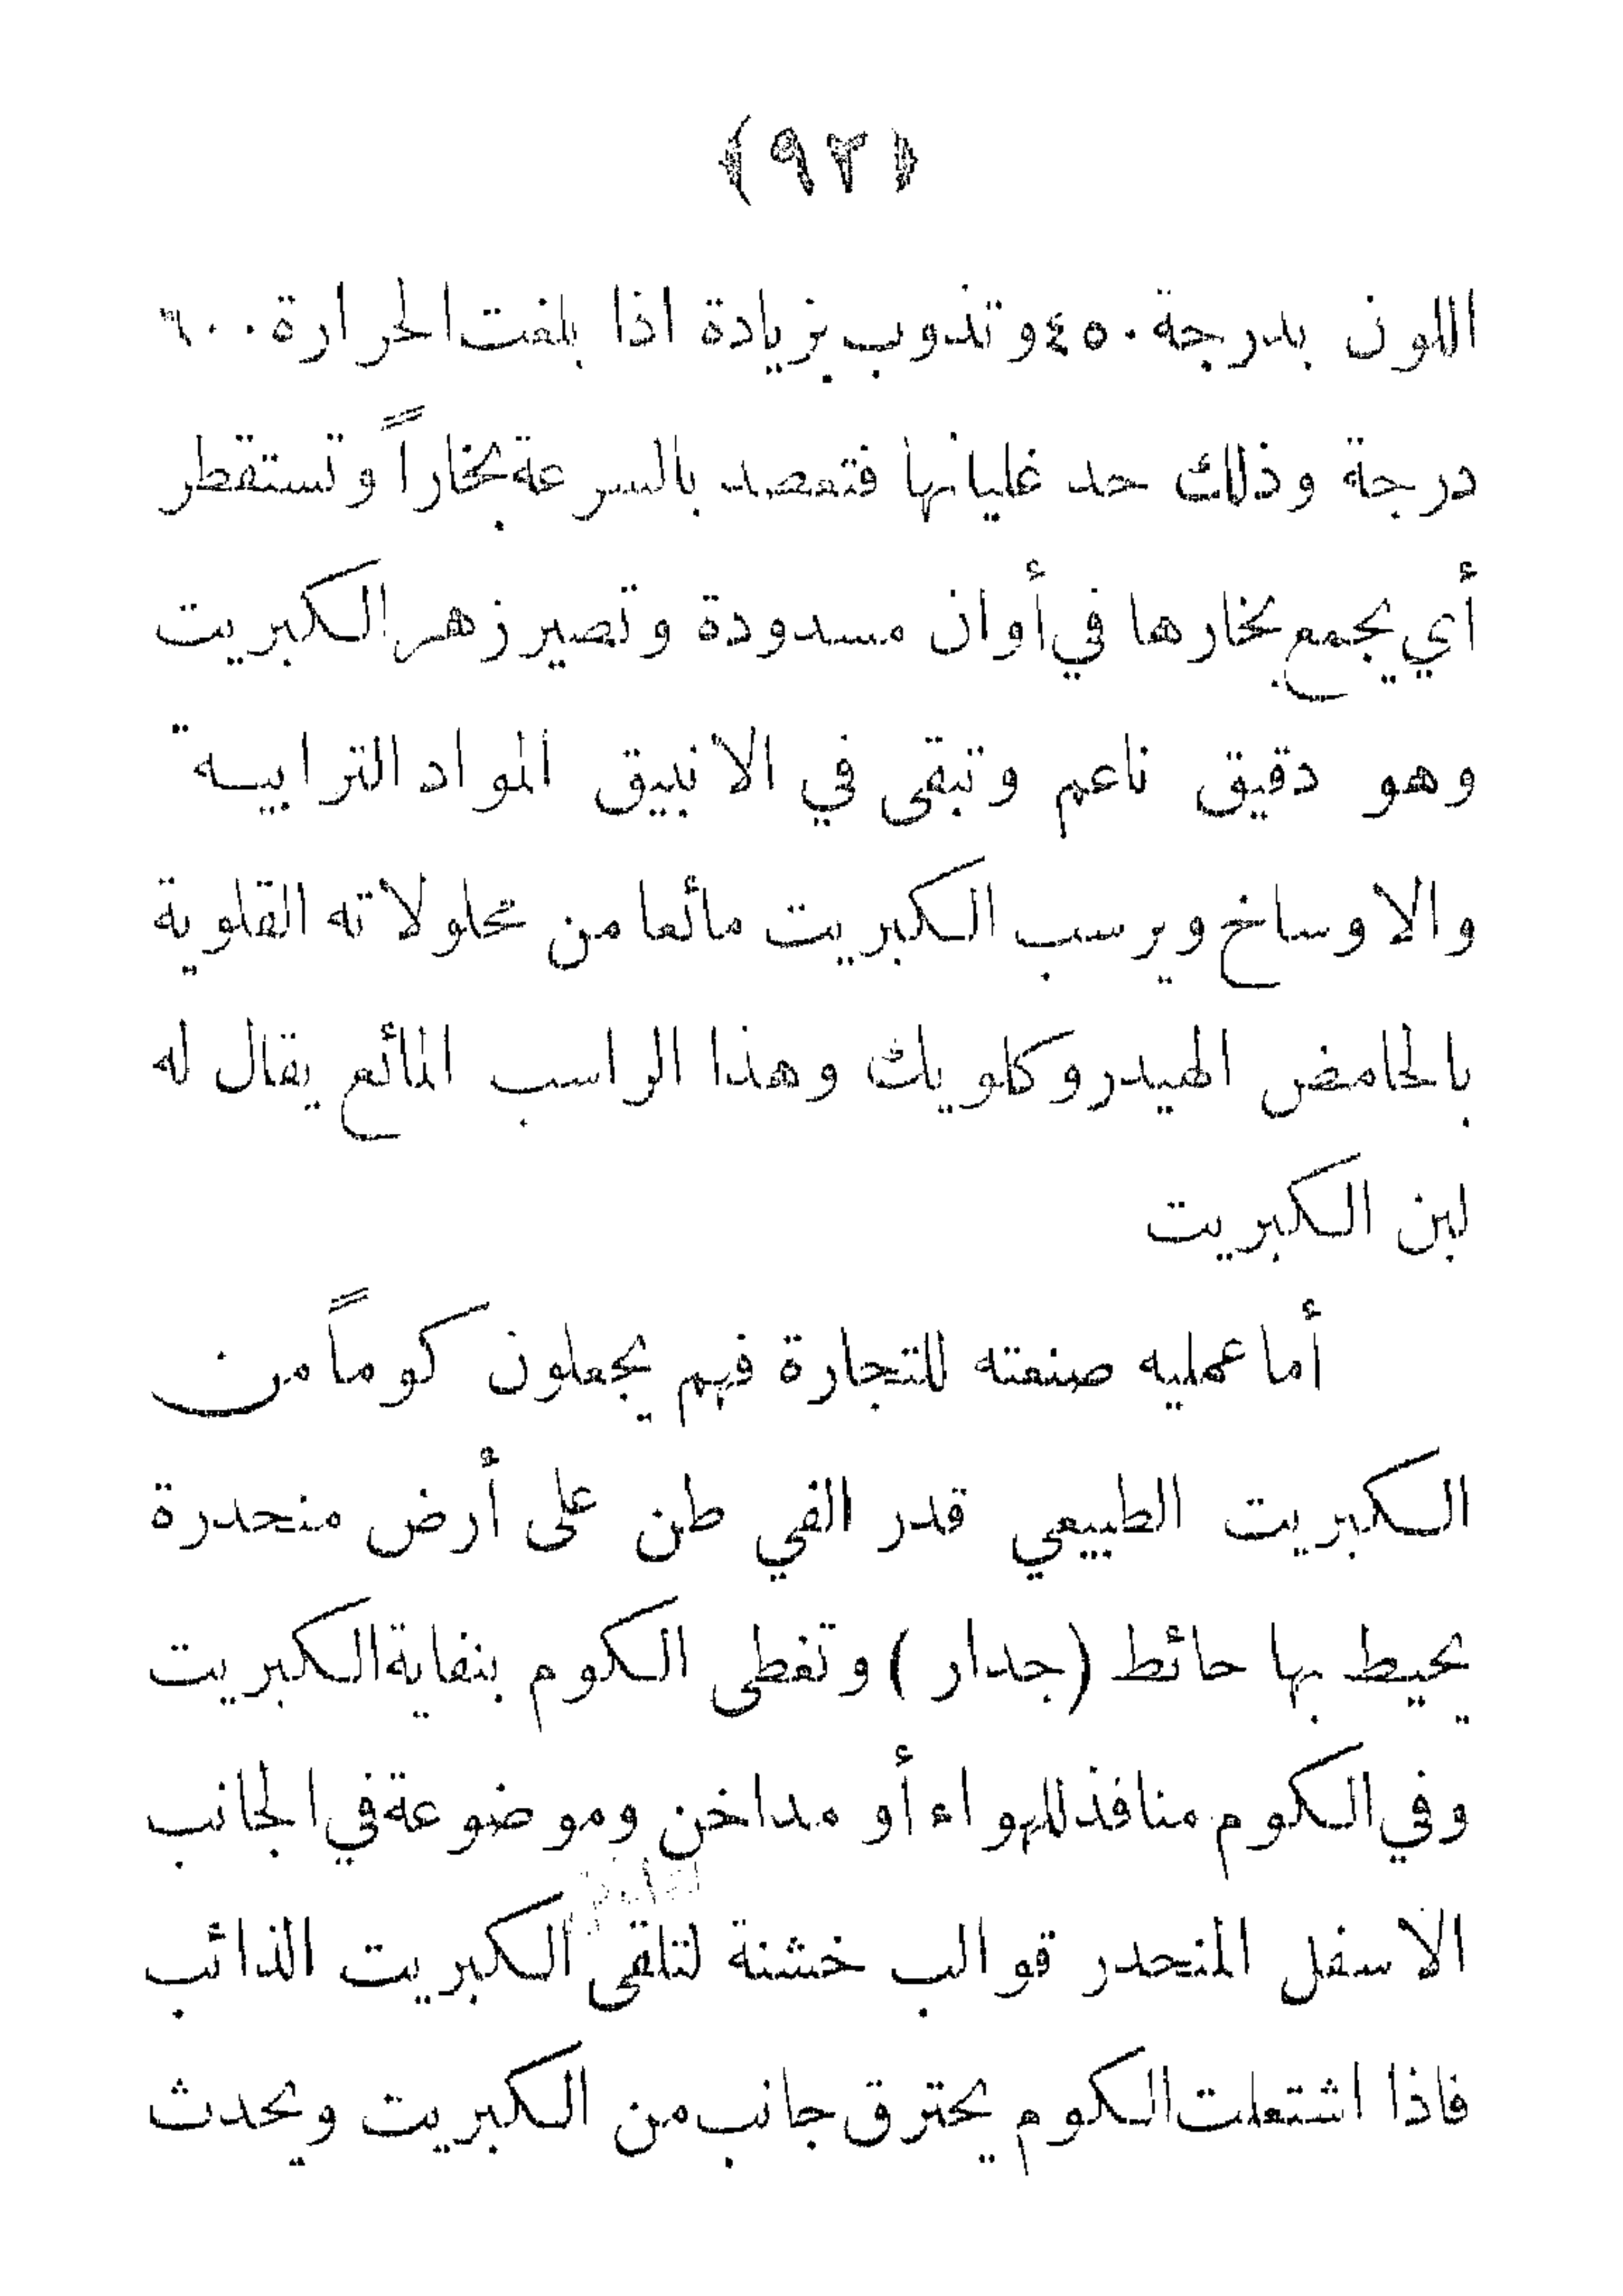 ﴿٩٢﴾
اللون بدرجة ٤٥٠ وتذوب بزيادة اذا بلغت الحرارة ٦٠٠
درجة وذلك حد غليانها فتصعد بالسرعة بخاراً وتستقطر
أي يجمع بخارها في أوان مسدودة وتصير زهر الكبريت
وهو دقيق ناعم وتبقى في الانبيق المواد الترابية
والاوساخ ويرسب الكبريت مائعا من محلولاته القلوية
بالحامض الهيدروكلويك وهذا الراسب المائع يقال له
لبن الكبريت
أما عمليه صنعته للتجارة فهم يجعلون كوماً من
الكبريت الطبيعي قدر الفي طن على أرض منحدرة
يحيط بها حائط (جدار) وتغطى الكوم بنفاية الكبريت
وفي الكوم منافذ للهواء أو مداخن وموضوعة في الجانب
الاسفل المنحدر قوالب خشنة لتلقى الكبريت الذائب
فاذا اشتعلت الكوم يحترق جانب من الكبريت ويحدث